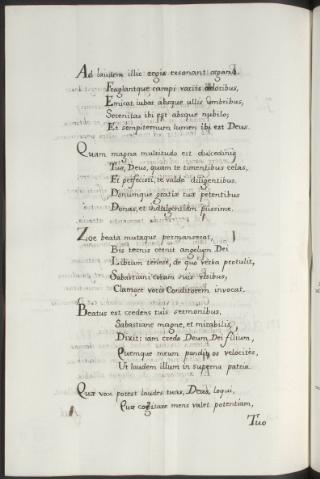 Ad laudem illic regis resonant organa,
Fraglantque campi variis odoribus,
Emicat iubar absque ullis umbribus,
Serenitas ibi est absque nubilo;
Et sempiternum lumen ibi est Deus.
Quam magna multitudo est dulcedinis
Tuæ, Deus, quam te timentibus celas,
Et perfecisti te valde diligentibus.
Donumque gratiæ tuæ petentibus
Donas, et indulgentiam piissime.
Zoe beata mutaque permanserat,
Bis ternis cernit angelum Dei
Librum tenere, de quo verba protulit,
Sabastiani coram suis visibus,
Clamore vocis Conditorem invocat.
Beatus est credens tuis sermonibus,
Sabastiane magne, et mirabilis,
Dixit: iam credo Deum, Dei filium,
Quemque meum pandis os velociter,
Ut laudem illum in superna patria.
Quæ vox potest laudes tuas, Deus, loqui,
Quæ cogitare mens valet potentiam,
Tuo